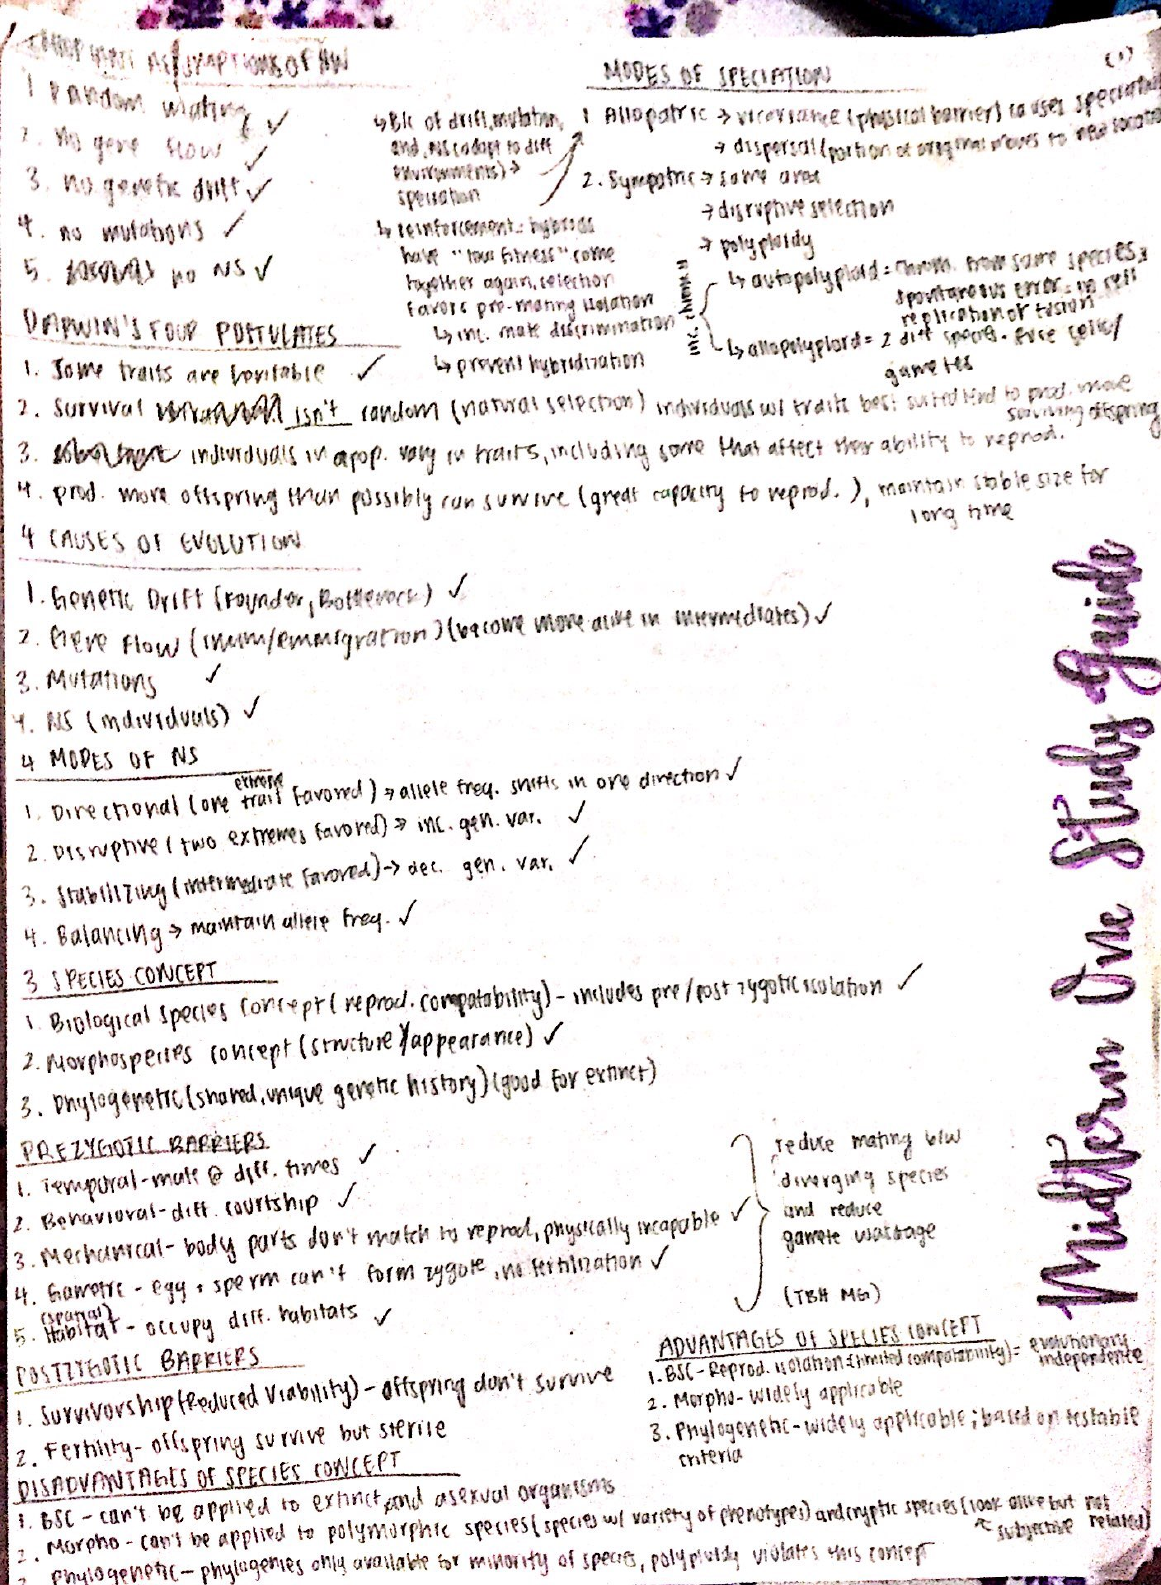 ASSUMPTIONS OF HW
1 Random mating ✓
2. No gene flow ✓
3. no genetic drift ✓
4. no mutations ✓
5. no NS ✓
(1)
MODES OF SPECIATION
1 Allopatric → vicariance (physical barrier) causes speciation
→ dispersal (portion of original moves to new location
2. Sympatric → same area
→ disruptive selection
→ polyploidy
↳ autopolyploid = chrom. from same species,
spontaneous error in cell
replication or fusion
↳ allopolyploid = 2 diff species. fuse cells/
gametes
↳ B/c of drift, mutation,
and NS (adapt to diff
environments) →
speciation
↳ reinforcement: hybrids
have "low fitness" come
together again, selection
favors pre-mating isolation
↳ inc. mate discrimination
↳ prevent hybridization
DARWIN'S FOUR POSTULATES
1. Some traits are heritable ✓
2. Survival isn't random (natural selection) individuals w/ traits best suited tend to prod. more
surviving offspring
3. individuals in a pop. vary in traits, including some that affect their ability to reprod.
4. prod. more offspring than possibly can survive (great capacity to reprod.), maintain stable size for
long time
4 CAUSES OF EVOLUTION
1. Genetic Drift (Founder, Bottleneck) ✓
2. Gene Flow (imm/emmigration) (become more alike in intermediates) ✓
3. Mutations ✓
4. NS (individuals) ✓
4 MODES OF NS
1. Directional (one extreme trait favored) → allele freq. shifts in one direction ✓
2. Disruptive (two extremes favored) → inc. gen. var. ✓
3. Stabilizing (intermediate favored) → dec. gen. var. ✓
4. Balancing → maintain allele freq. ✓
3 SPECIES CONCEPT
1. Biological Species Concept (reprod. compatability) - includes pre/post zygotic isolation ✓
2. Morphospecies concept (structure/appearance) ✓
3. Phylogenetic (shared, unique genetic history) (good for extinct)
PREZYGOTIC BARRIERS
1. Temporal - mate @ diff. times ✓
2. Behavioral - diff. courtship ✓
3. Mechanical - body parts don't match to reprod, physically incapable ✓
4. Gametic - egg + sperm can't form zygote, no fertilization ✓
(spatial)
5. Habitat - occupy diff. habitats ✓
reduce mating b/w
diverging species
and reduce
gamete wastage
(TBH MG)
POSTZYGOTIC BARRIERS
1. Survivorship (Reduced Viability) - offspring don't survive
2. Fertility - offspring survive but sterile
ADVANTAGES OF SPECIES CONCEPT
1. BSC - Reprod. isolation (limited compatability) = evolutionary
independence
2. Morpho - widely applicable
3. Phylogenetic - widely applicable; based on testable
criteria
DISADVANTAGES OF SPECIES CONCEPT
1. BSC - can't be applied to extinct and asexual organisms
2. Morpho - can't be applied to polymorphic species (species w/ variety of phenotypes) and cryptic species (look alike but not
related)
↑ subjective
3 Phylogenetic - phylogenies only available for minority of species, polyploidy violates this concept
Midterm One Study guide